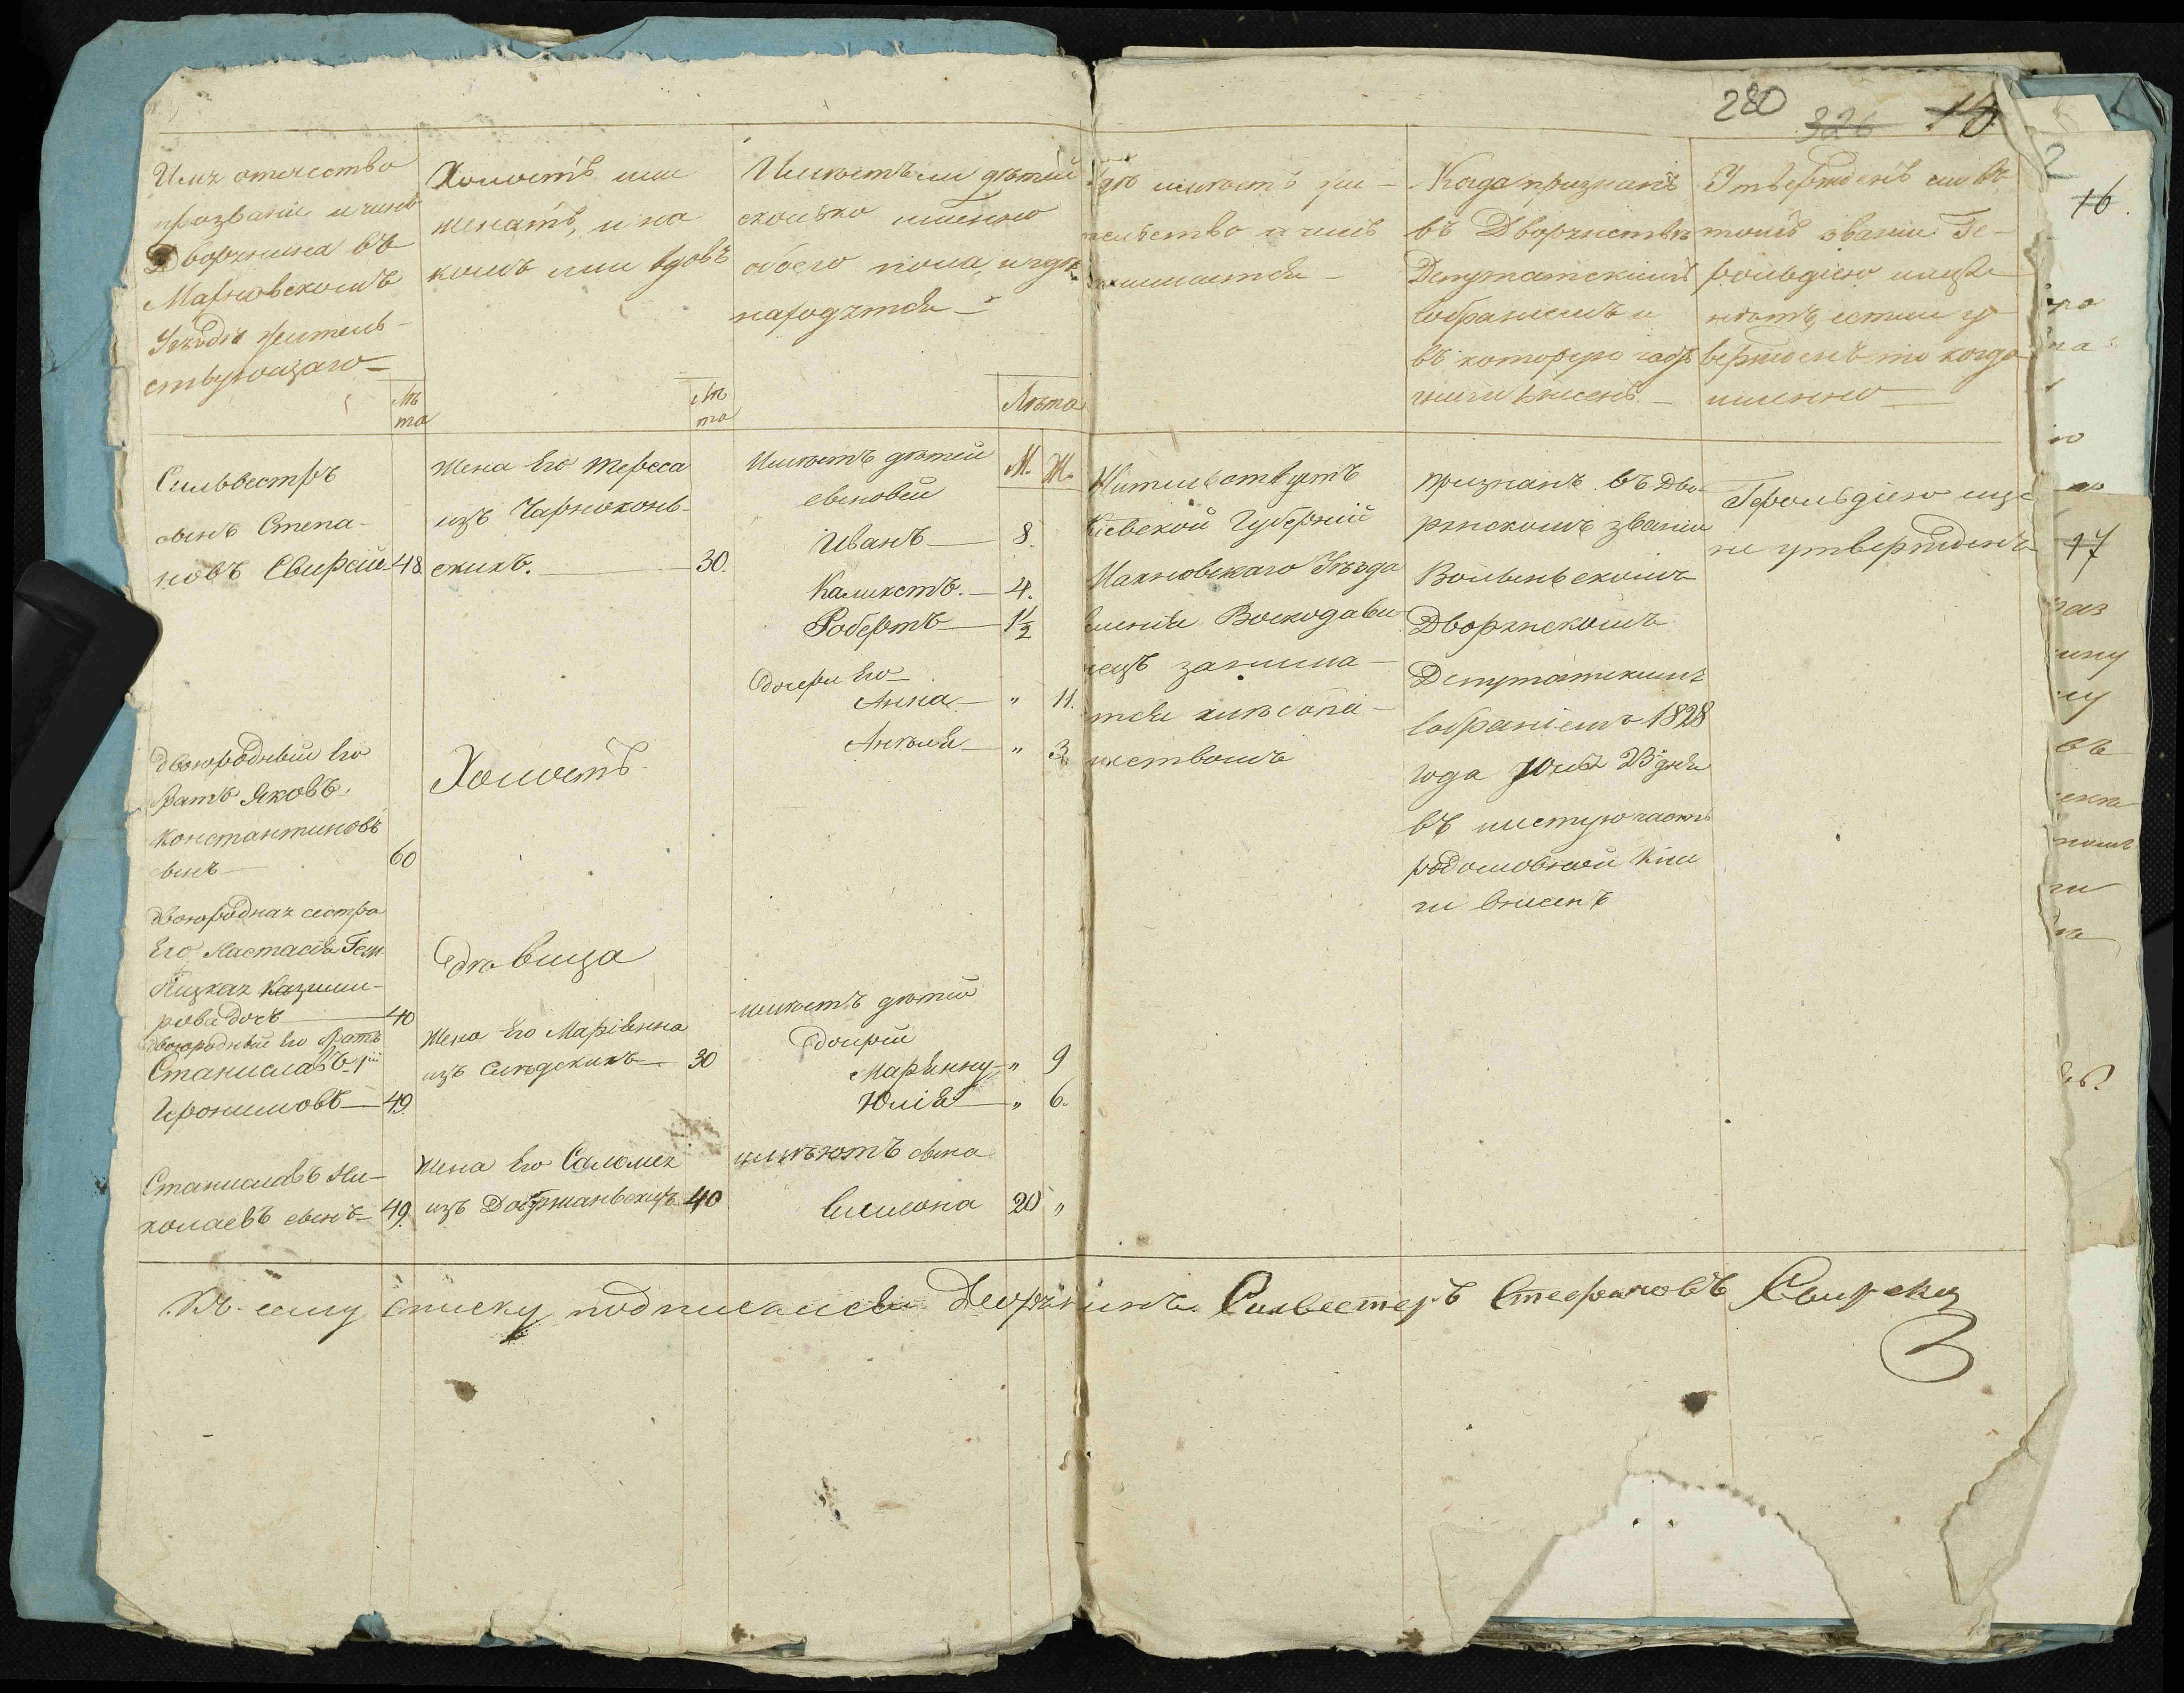 280 326 15
Имя отчество
прозваніе и чинъ
Дворянина въ
Махновскомъ
Уездѣ жительствующаго
Лѣта
Холостъ или
женатъ, и на
комъ или вдовъ
Лѣта
Имѣетъ ли дѣтей
сколько именно
обоего пола, и гдѣ
находятся
Лѣта
М. Ж.
Гдѣ имѣетъ жи-
тельство и чемъ
занимается
Когда признанъ
въ Дворянствѣ
Депутатскимъ
собраніемъ и
въ которую часть
книги внесенъ
Утвержденъ ли въ
томъ званіи Ге-
рольдіею или
нѣтъ, если у-
твержденъ то когда
именно
Сильвестръ
сынъ Степа-
новъ Свирскій 48
жена Его Тереса
изъ Чарноконь-
скихъ. 30.
Имѣетъ дѣтей
сыновей
Иванъ 8.
Каликстъ. 4.
Робертъ 1½
Дочери Его
Анна " 11.
Анеля " 3
Жительствуетъ
Кіевской Губерніи
Махновскаго Уѣзда
селенія Воскодави-
нецъ занима-
тся хлѣбопа-
шествомъ
признанъ въ Дво-
рянскомъ званіи
Волынскомъ
Дворянскомъ
Депутатскимъ
собраніемъ 1828
года Юля 23 дня
въ шестую часть
родословной Кни
ги внесенъ
Герольдіею еще
не утвержденъ
Двоюродный Его
братъ Яковъ
Константиновъ
сынъ 60
Холостъ
Двоюродная сестра
Его Настасія
Казими-
рова дочь 40
Девица
двоюродный Его братъ
Станиславъ 1й
Иеронимовъ 49.
Жена Его Маріянна
изъ 30
имѣетъ дѣтей
дочерей
Марянну " 9
Юлія " 6.
Станиславъ Ни-
колаевъ сынъ 49.
жена Его Саломея
изъ 40
имѣютъ сына
Симона 20 "
Къ сему списку подписался Дворянинъ Силвестеръ Стефановъ Свирски
16
17